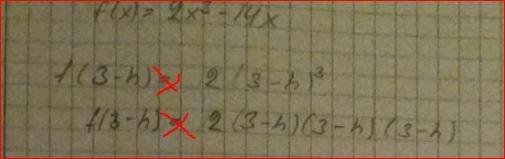 f(x) = 2x³ - 14x
f(3-h) = 2(3-h)³
f(3-h) = 2(3-h)(3-h)(3-h)